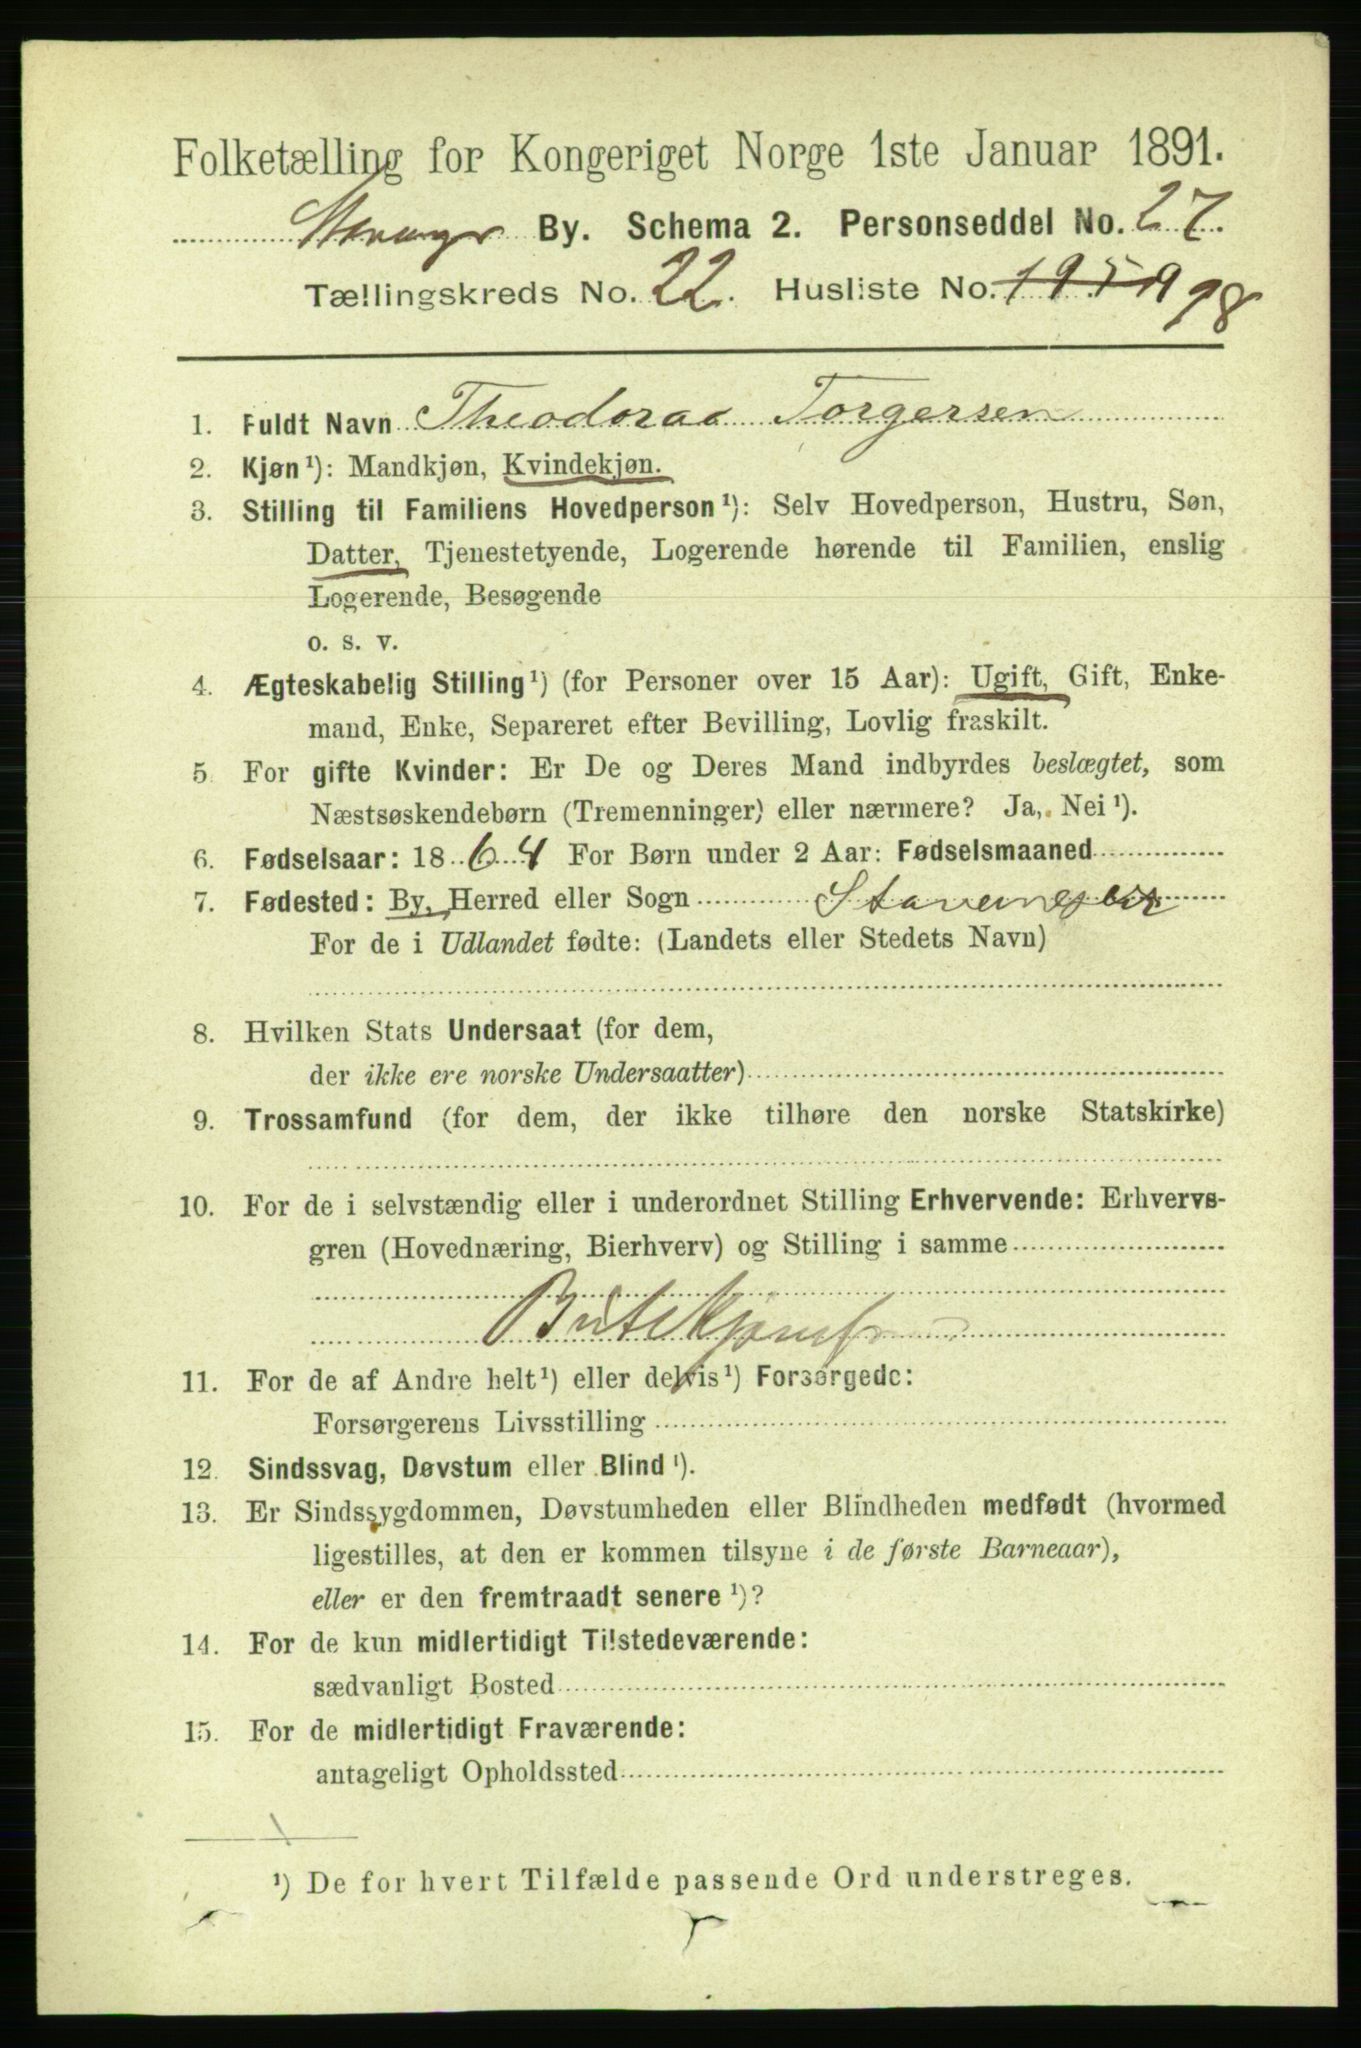 Folketælling for Kongeriget Norge 1ste Januar 1891.
By. Schema 2. Personseddel No. 27.
Tællingskreds No. 22. Husliste No. 198
1. Fuldt Navn Theodora Torgersen
2. Kjøn ¹): Mandkjøn, Kvindekjøn.
3. Stilling til Familiens Hovedperson ¹): Selv Hovedperson, Hustru, Søn,
Datter, Tjenestetyende, Logerende hørende til Familien, enslig
Logerende, Besøgende
o. s. v.
4. Ægteskabelig Stilling ¹) (for Personer over 15 Aar): Ugift, Gift, Enke-
mand, Enke, Separeret efter Bevilling, Lovlig fraskilt.
5 For gifte Kvinder: Er De og Deres Mand indbyrdes beslægtet, som
Næstsøskendebørn (Tremenninger) eller nærmere? Ja, Nei ¹).
6. Fødselsaar: 1864 For Børn under 2 Aar: Fødselsmaaned
7. Fødested: By, Herred eller Sogn
For de i Udlandet fødte: (Landets eller Stedets Navn)
8. Hvilken Stats Undersaat (for dem,
der ikke ere norske Undersaatter)
9. Trossamfund (for dem, der ikke tilhøre den norske Statskirke)
10. For de i selvstændig eller i underordnet Stilling Erhvervende: Erhvervs-
gren (Hovednæring, Bierhverv) og Stilling i samme
11. For de af Andre helt ¹) eller delvis ¹) Forsørgede:
Forsørgerens Livsstilling
12. Sindssvag, Døvstum eller Blind ¹).
13. Er Sindssygdommen, Døvstumheden eller Blindheden medfødt (hvormed
ligestilles, at den er kommen tilsyne i de første Barneaar),
eller er den fremtraadt senere ¹)?
14. For de kun midlertidigt Tilstedeværende:
sædvanligt Bosted
15. For de midlertidigt Fraværende:
antageligt Opholdssted
¹) De for hvert Tilfælde passende Ord understreges.